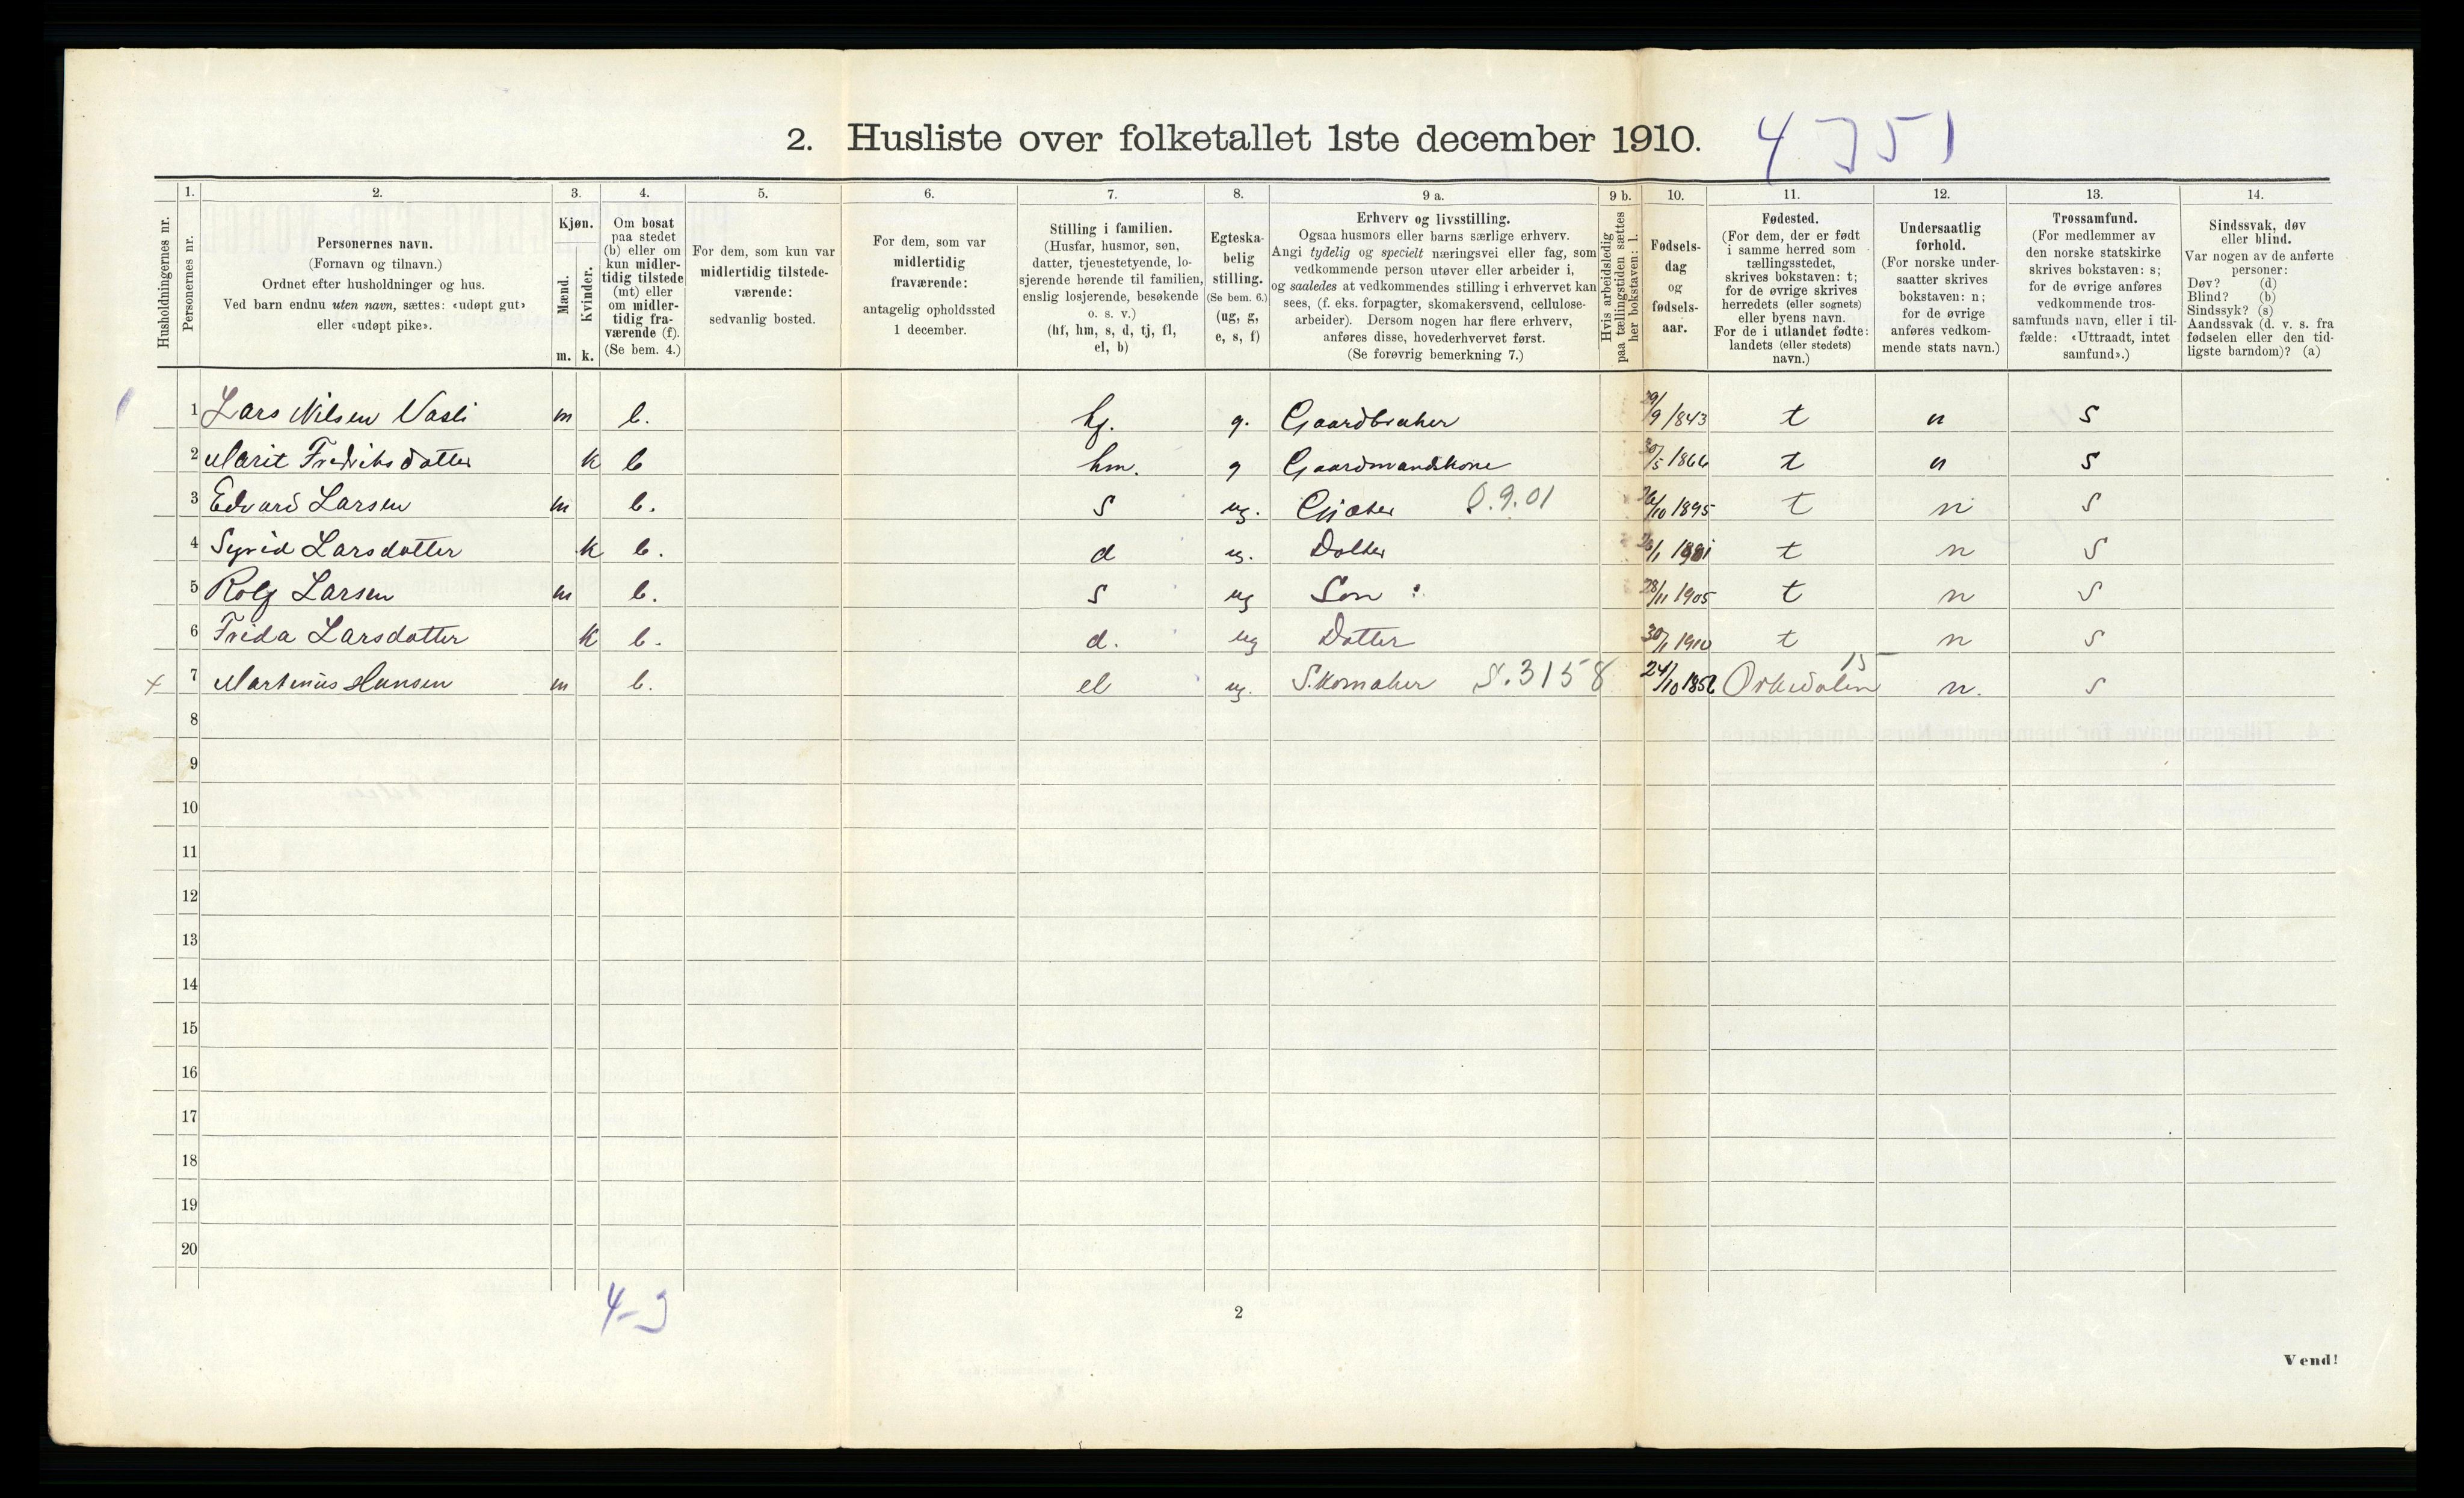 2. Husliste over folketallet 1ste december 1910. 4 351
Husholdningernes nr.
1.
Personernes nr.
2.
Personernes navn.
(Fornavn og tilnavn.)
Ordnet efter husholdninger og hus.
Ved barn endnu uten navn, sættes: «udøpt gut»
eller «udøpt pike».
3.
Kjøn.
Mænd.
Kvinder.
m. k.
4.
Om bosat
paa stedet
(b) eller om
kun midler-
tidig tilstede
(mt) eller
om midler-
tidig fra-
værende (f).
(Se bem. 4.)
5.
For dem, som kun var
midlertidig tilstede-
værende:
sedvanlig bosted.
6.
For dem, som var
midlertidig
fraværende:
antagelig opholdssted
1 december.
7.
Stilling i familien.
(Husfar, husmor, søn,
datter, tjenestetyende, lo-
sjerende hørende til familien,
enslig losjerende, besøkende
o. s. v.)
(hf, hm, s, d, tj, fl,
el, b)
8.
Egteska-
belig
stilling.
(Se bem. 6.)
(ug, g,
e, s, f)
9 a.
Erhverv og livsstilling.
Ogsaa husmors eller barns særlige erhverv.
Angi tydelig og specielt næringsvei eller fag, som
vedkommende person utøver eller arbeider i,
og saaledes at vedkommendes stilling i erhvervet kan
sees, (f. eks. forpagter, skomakersvend, cellulose-
arbeider). Dersom nogen har flere erhverv,
anføres disse, hovederhvervet først.
(Se forøvrig bemerkning 7.)
9 b.
Hvis arbeidsledig
paa tællingstiden sættes
her bokstaven: l.
10.
Fødsels-
dag
og
fødsels-
aar.
11.
Fødested.
(For dem, der er født
i samme herred som
tællingsstedet,
skrives bokstaven: t;
for de øvrige skrives
herredets (eller sognets)
eller byens navn.
For de i utlandet fødte:
landets (eller stedets)
navn.)
12.
Undersaatlig
forhold.
(For norske under-
saatter skrives
bokstaven: n;
for de øvrige
anføres vedkom-
mende stats navn.)
13.
Trossamfund.
(For medlemmer av
den norske statskirke
skrives bokstaven: s;
for de øvrige anføres
vedkommende tros-
samfunds navn, eller i til-
fælde: «Uttraadt, intet
samfund».)
14.
Sindssvak, døv
eller blind.
Var nogen av de anførte
personer:
Døv? (d)
Blind? (b)
Sindssyk? (s)
Aandssvak (d. v. s. fra
fødselen eller den tid-
ligste barndom)? (a)
1 Lars Nilsen Vasli m b. hf. g. Gaardbruker 29/9 1843 t n s
2 Marit Fredriksdatter k b hm. g Gaardmandskone 30/5 1866 t n s
3 Edvard Larsen m b. s ug. Gjæter 0.9.01 26/10 1895 t n s
4 Sigrid Larsdatter k b. d ug. Dotter t n s
5 Rolf Larsen m b. s ug Søn : 28/11 1905 t n s
6 Frida Larsdatter k b. d. ug Dotter 30/1 1910 t n s
+ 7 Martinus Hansen m b. el ug. Skomaker S.3158 24/10 1852 Orkedalen 15 n. s
8
9
10
11
12
13
14
15
16
17
18
19
20
4-3
2
Vend!